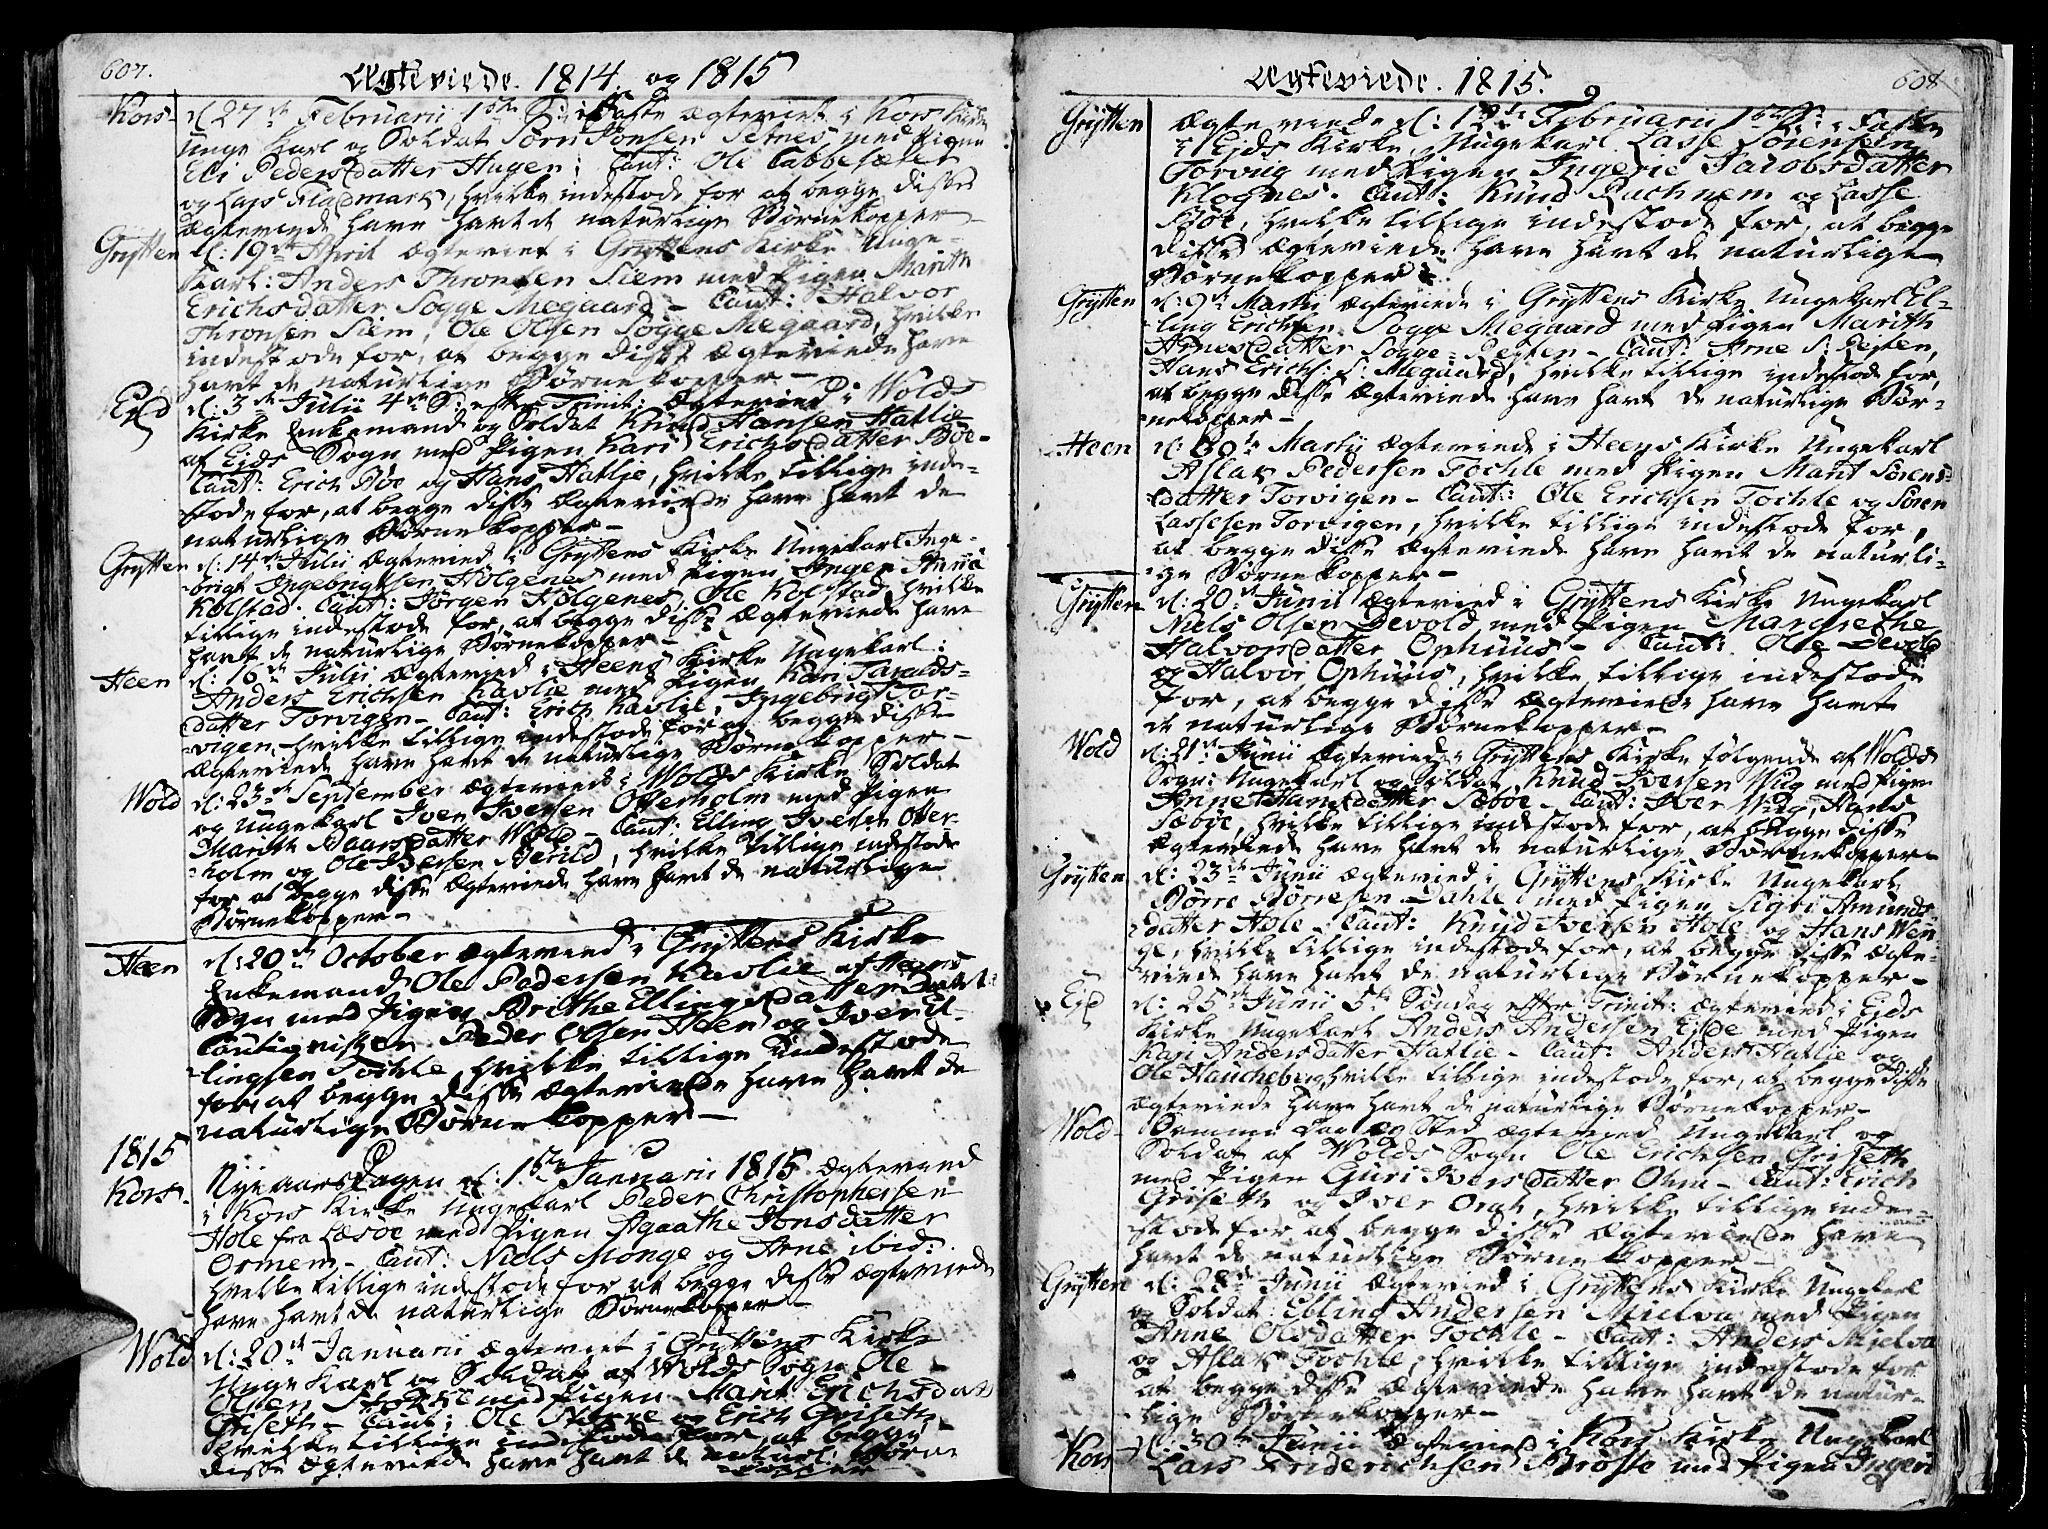 607.
Ægteviede. 1814. og 1815
Kors- d. 27de Februarii 1ste S: i Faste ægteviet i Kors Kirke
Unge Karl og Soldat Sørn Jonsen Setnes med Pigen
Eli Pedersdatter Hagen; Caut: Ole
og Lars Fladmark, hvilke indestode for at begge disse
ægteviede have havt de naturlige Børnekopper-
Grytten d: 19de April ægteviet i Gryttens Kirke Unge-
Karl: Anders Thronsen Siem med Pigen Marith
Erichsdatter Sogge Megaard- Caut: Halvor
Thronsen Siem, Ole Olsen Sogge Megaard, hvilke
indestode for, at begge disse Ægteviede have
havt de naturlige Børne kopper-
Ejd d: 3de Julii 4de S: efter Trinit: Ægteviede i Wolds
Kirke Enkemand og Soldat Knud Hansen Hatlie
af Ejds Sogn med Pigen Kari Erichsdatter Bøe-
Caut: Erich Bøe og Hans Hatlie, hvilke tillige inde-
stode for, at begge disse Ægteviede have havt de
naturlige Børne kopper-
Grytten d: 14de Julii Ægteviede i Gryttens Kirke Ungekarl Inge-
brigt Ingebrigtsen Holgenes med Pigen Inger Anna
Kolstad. Caut: Jørgen Holgenes, Ole Kolstad, hvilke
tillige indestode for, at begge disse Ægteviede have
havt de naturlige Børnekopper-
Heen d: 16de Julii Ægteviede i Heens Kirke Ungekarl:
Anders Erichsen Kavlie med Pigen Kari Taralds-
datter Torvigen- Caut: Erich Kavlie, Ingebrigt Tor-
vigen, hvilke tillige indestode for at begge disse
Ægteviede have havt de naturlige Børne kopper-
Wold d: 23de September Ægteviede i Wolds Kirke Soldat
og Ungekarl Iver Iversen Otterholm med Pigen
Marith Baarsdatter Wold- Caut: Elling Iversen Otter-
holm og Ole Bersen Berild, hvilke tillige indestode
for at begge disse Ægteviede have havt de naturlige
Børnekopper-
Heen d: 20de October Ægteviede i Gryttens Kirke
Enkemand Ole Pedersen Kavlie af Heens
Sogn med Pigen Brithe Ellingsdatter
Cautionister Peder Olsen Heen og Iver El-
lingsen Tochle, hvilke tillige indestode
for, at begge disse Ægteviede have havt de
naturlige Børne kopper-
1815
Kors- Nye aars Dagen d: 1ste Januarii 1815 Ægteviede
i Kors Kirke Ungekarl Peder Christophersen
Hole fra Læsøe med Pigen Agaathe Jonsdatter
Ormem- Caut: Niels Monge og Arne ibid:
hvilke tillige indestode for at begge disse Ægteviede
have havt de naturlige Børnekopper-
Wold d: 20de Januarii Ægteviet i Gryttens Kirke
Unge Karl og Soldat af Wolds Sogn Ole
Olsen Stokke med Pigen Marit Erichsdat
Griseth- Caut: Ole Stokke og Erich Griseth,
hvilke tillige indestode for, at begge
disse Ægteviede have havt de naturl: Børne
kopper
608
Ægteviede. 1815.
Grytten Ægteviede d: 12te Februarii 1ste S: i Faste
i Ejds Kirke, Ungekarl Lasse Sørensen
Torvig med Pigen Ingerie Jacobsdatter
Klognes. Caut: Knud Lachnem og Lasse
Bøe, hvilke tillige indestode for, at begge
disse Ægteviede have havt de naturlige
Børnekopper-
Grytten d: 9de Martii Ægteviede i Gryttens Kirke Ungekarl El-
ling Erichsen Sogge Megaard med Pigen Marith
Arnesdatter Sogge-Leyten- Caut: Arne S: Leyten,
Hans Erichs: S: Megaard, hvilke tillige indestode for,
at begge disse Ægteviede have havt de naturlige Bør-
nekopper-
Heen d: 30te Martii Ægteviede i Heens Kirke Ungekarl
Aslak Pedersen Tochle med Pigen Marit Sørens-
datter Torvigen- Caut: Ole Erichsen Tochle og Sören
Lassesen Torvigen, hvilke tillige indestode for,
at begge disse Ægteviede have havt de naturli-
ge Børnekopper-
Grytten d: 20de Junii Ægteviede i Gryttens Kirke Ungekarl
Niels Olsen Devold med Pigen Margrethe
Halvorsdatter Ophuus- Caut: Ole Devold
og Halvor Ophuus, hvilke tillige indestode
for, at begge disse Ægteviede have havt
de naturlige Børnekopper-
Wold d: 21de Junii Ægteviede i Gryttens Kirke følgende af Wolds
Sogn: Ungekarl og Soldat Knud Iversen Wiig med Pigen
Anne Hansdatter Sæbøe- Caut: Iver Wiig, Hans
Sæbøe, hvilke tillige indestode for, at begge disse
Ægteviede have havt de naturlige Børnekopper-
Grytten d: 23de Junii Ægteviede i Gryttens Kirke Ungekarl
Børre Børresen Dahle med Pigen Sigri Amunds-
datter Hole- Caut: Knud Iversen Hole og Hans Wen-
ge, hvilke tillige indestode for, at begge disse Ægte-
viede have havt de naturlige Børnekopper-
Ejd d: 25de Junii 5te Søndag efter Trinit: Ægteviede i Ejds
Kirke Ungekarl Anders Andersen Eide med Pigen
Kari Andersdatter Hatlie- Caut: Anders Hatlie og
Ole Haucheberg, hvilke tillige indestode for, at begge disse
Ægteviede have havt de naturlige Børnekopper-
Wold- Samme Dag og Sted Ægteviede Ungekarl og
Soldat af Wolds Sogn Ole Erichsen Griseth
med Pigen Guri Iversdatter Ohm- Caut: Erich
Griseth og Iver Orah, hvilke tillige inde-
stode for at begge disse Ægteviede have
havt de naturlige Børne kopper-
Grytten d: 28de Junii Ægteviede i Gryttens Kirke Ungekarl
og Soldat: Elling Andersen Mielva med Pigen
Anne Olsdatter Tochle- Caut: Anders Mielva
og Aslak Tochle, hvilke tillige indestode for
at begge disse Ægteviede have havt de natur-
lige Børnekopper-
Kors d: 30te Junii Ægteviede i Kors Kirke Ungekarl
Lars Friderichsen Brøste med Pigen Ingeri